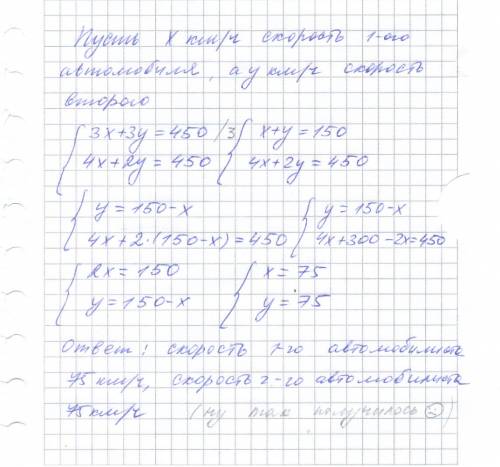 Пусть х км/ч скорость 1-ого
автомобиля, а у км/ч скорость
второго
{ 3x+3y=450 /3 { x+y=150
{ 4x+2y=450 { 4x+2y=450
{ y=150-x { y=150-x
{ 4x+2·(150-x)=450 { 4x+300-2x=450
{ 2x=150 { x=75
{ y=150-x { y=75
Ответ: скорость 1-го автомобилиста
75 км/ч, скорость 2-го автомобилиста
75 км/ч (ну так получилось ☹)